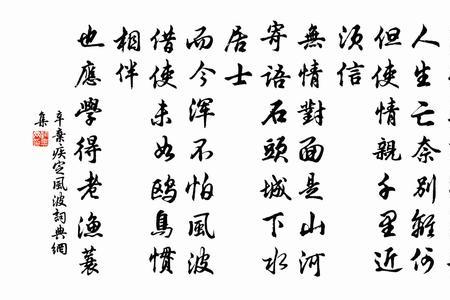 人生亡奈別離何
但使情親千里近
須信
無情對面是山河
寄語石頭城下水
居士
而今渾不怕風波
借使未如鷗鳥慣
相伴
也應學得老漁蓑
辛棄疾定風波詞典網
集